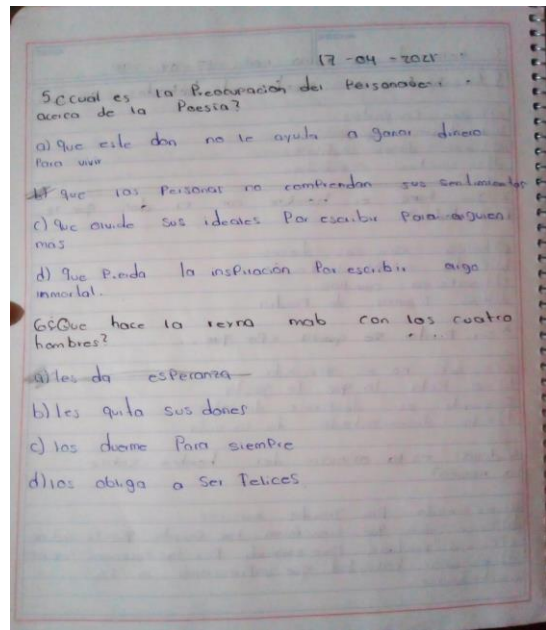 17-04-2021
5¿Cual es la Preocupación del Personaje
acerca de la Poesia?
a) que este don no le ayuda a ganar dinero
Para vivir
b) que las Personas no comprendan sus sentimientos
c) que olvide sus ideales Por escribir Para alguien
mas
d) que Pierda la insPiración Por escribir algo
inmortal.
6¿Que hace la reyna mab con los cuatro
hombres?
a) les da esperanza
b) les quita sus dones
c) los duerme Para siempre
d) los obliga a ser felices